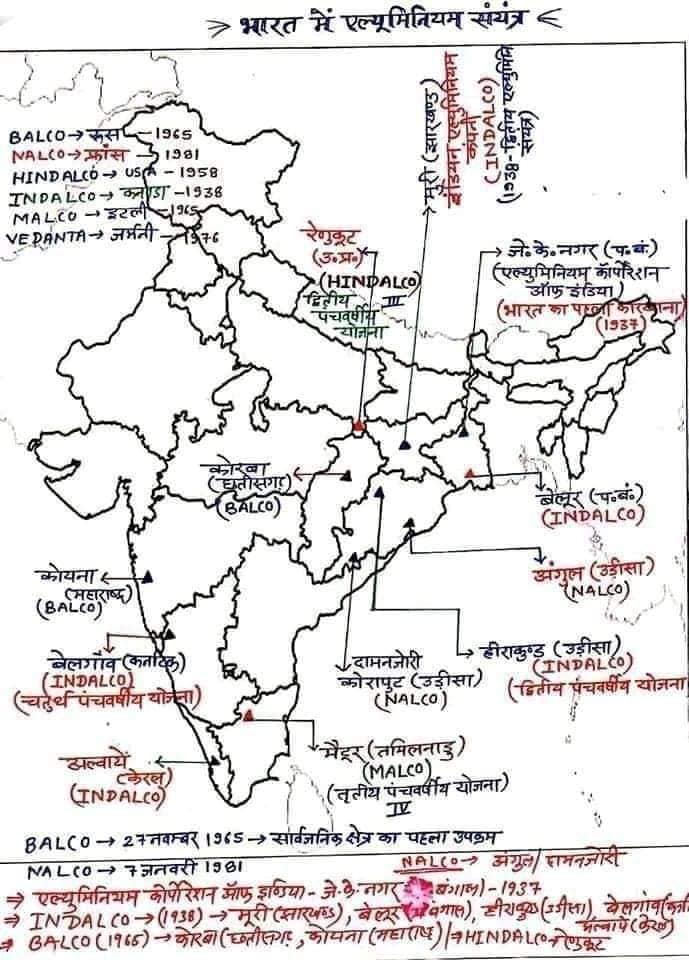 भारत में एल्यूमिनियम संयंत्र
BALCO → रूस — 1965
NALCO → फ्रांस — 1981
HINDALCO → USA — 1958
INDALCO → कनाडा — 1938
MALCO → इटली — 1965
VEDANTA → जर्मनी — 1976
मूरी (झारखण्ड)
इंडियन एल्यूमिनियम
कंपनी
(INDALCO)
(1938-द्वितीय एल्यूमिनि
संयंत्र)
रेणुकूट
(उ.प्र.)
(HINDALCO)
III
द्वितीय
पंचवर्षीय
योजना
जे.के.नगर (प.बं.)
(एल्युमिनियम कॉर्पोरेशन
ऑफ इंडिया)
(भारत का पहला कारखाना)
(1937)
कोरबा
(छत्तीसगढ़)
(BALCO)
बेलूर (प.बं.)
(INDALCO)
अंगुल (उड़ीसा)
(NALCO)
कोयना
(महाराष्ट्र)
(BALCO)
बेलगाँव (कर्नाटक)
(INDALCO)
(चतुर्थ पंचवर्षीय योजना)
दामनजोरी
कोरापुट (उड़ीसा)
(NALCO)
हीराकुण्ड (उड़ीसा)
(INDALCO)
(द्वितीय पंचवर्षीय योजना
मैटूर (तमिलनाडु)
(MALCO)
(तृतीय पंचवर्षीय योजना)
IV
अल्वाये
(केरल)
(INDALCO)
BALCO → 27 नवम्बर 1965 → सार्वजनिक क्षेत्र का पहला उपक्रम
NALCO → 7 जनवरी 1981
NALCO → अंगुल/दामनजोरी
⇒ एल्यूमिनियम कॉर्पोरेशन ऑफ इण्डिया - जे.के.नगर बंगाल) - 1937
⇒ INDALCO → (1938) → मूरी (झारखण्ड), बेलूर बंगाल), हीराकुण्ड (उडीसा), बेलगांव
अल्वाये (केरल)
⇒ BALCO (1965) → कोरबा (छत्तीसगढ़, कोयना (महाराष्ट्र) / ⇒ HINDALCO → रेणुकूट